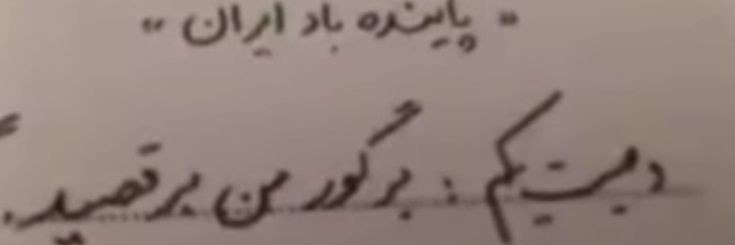 "پاینده باد ایران"
وصیت یکم: بر گور من برقصید.